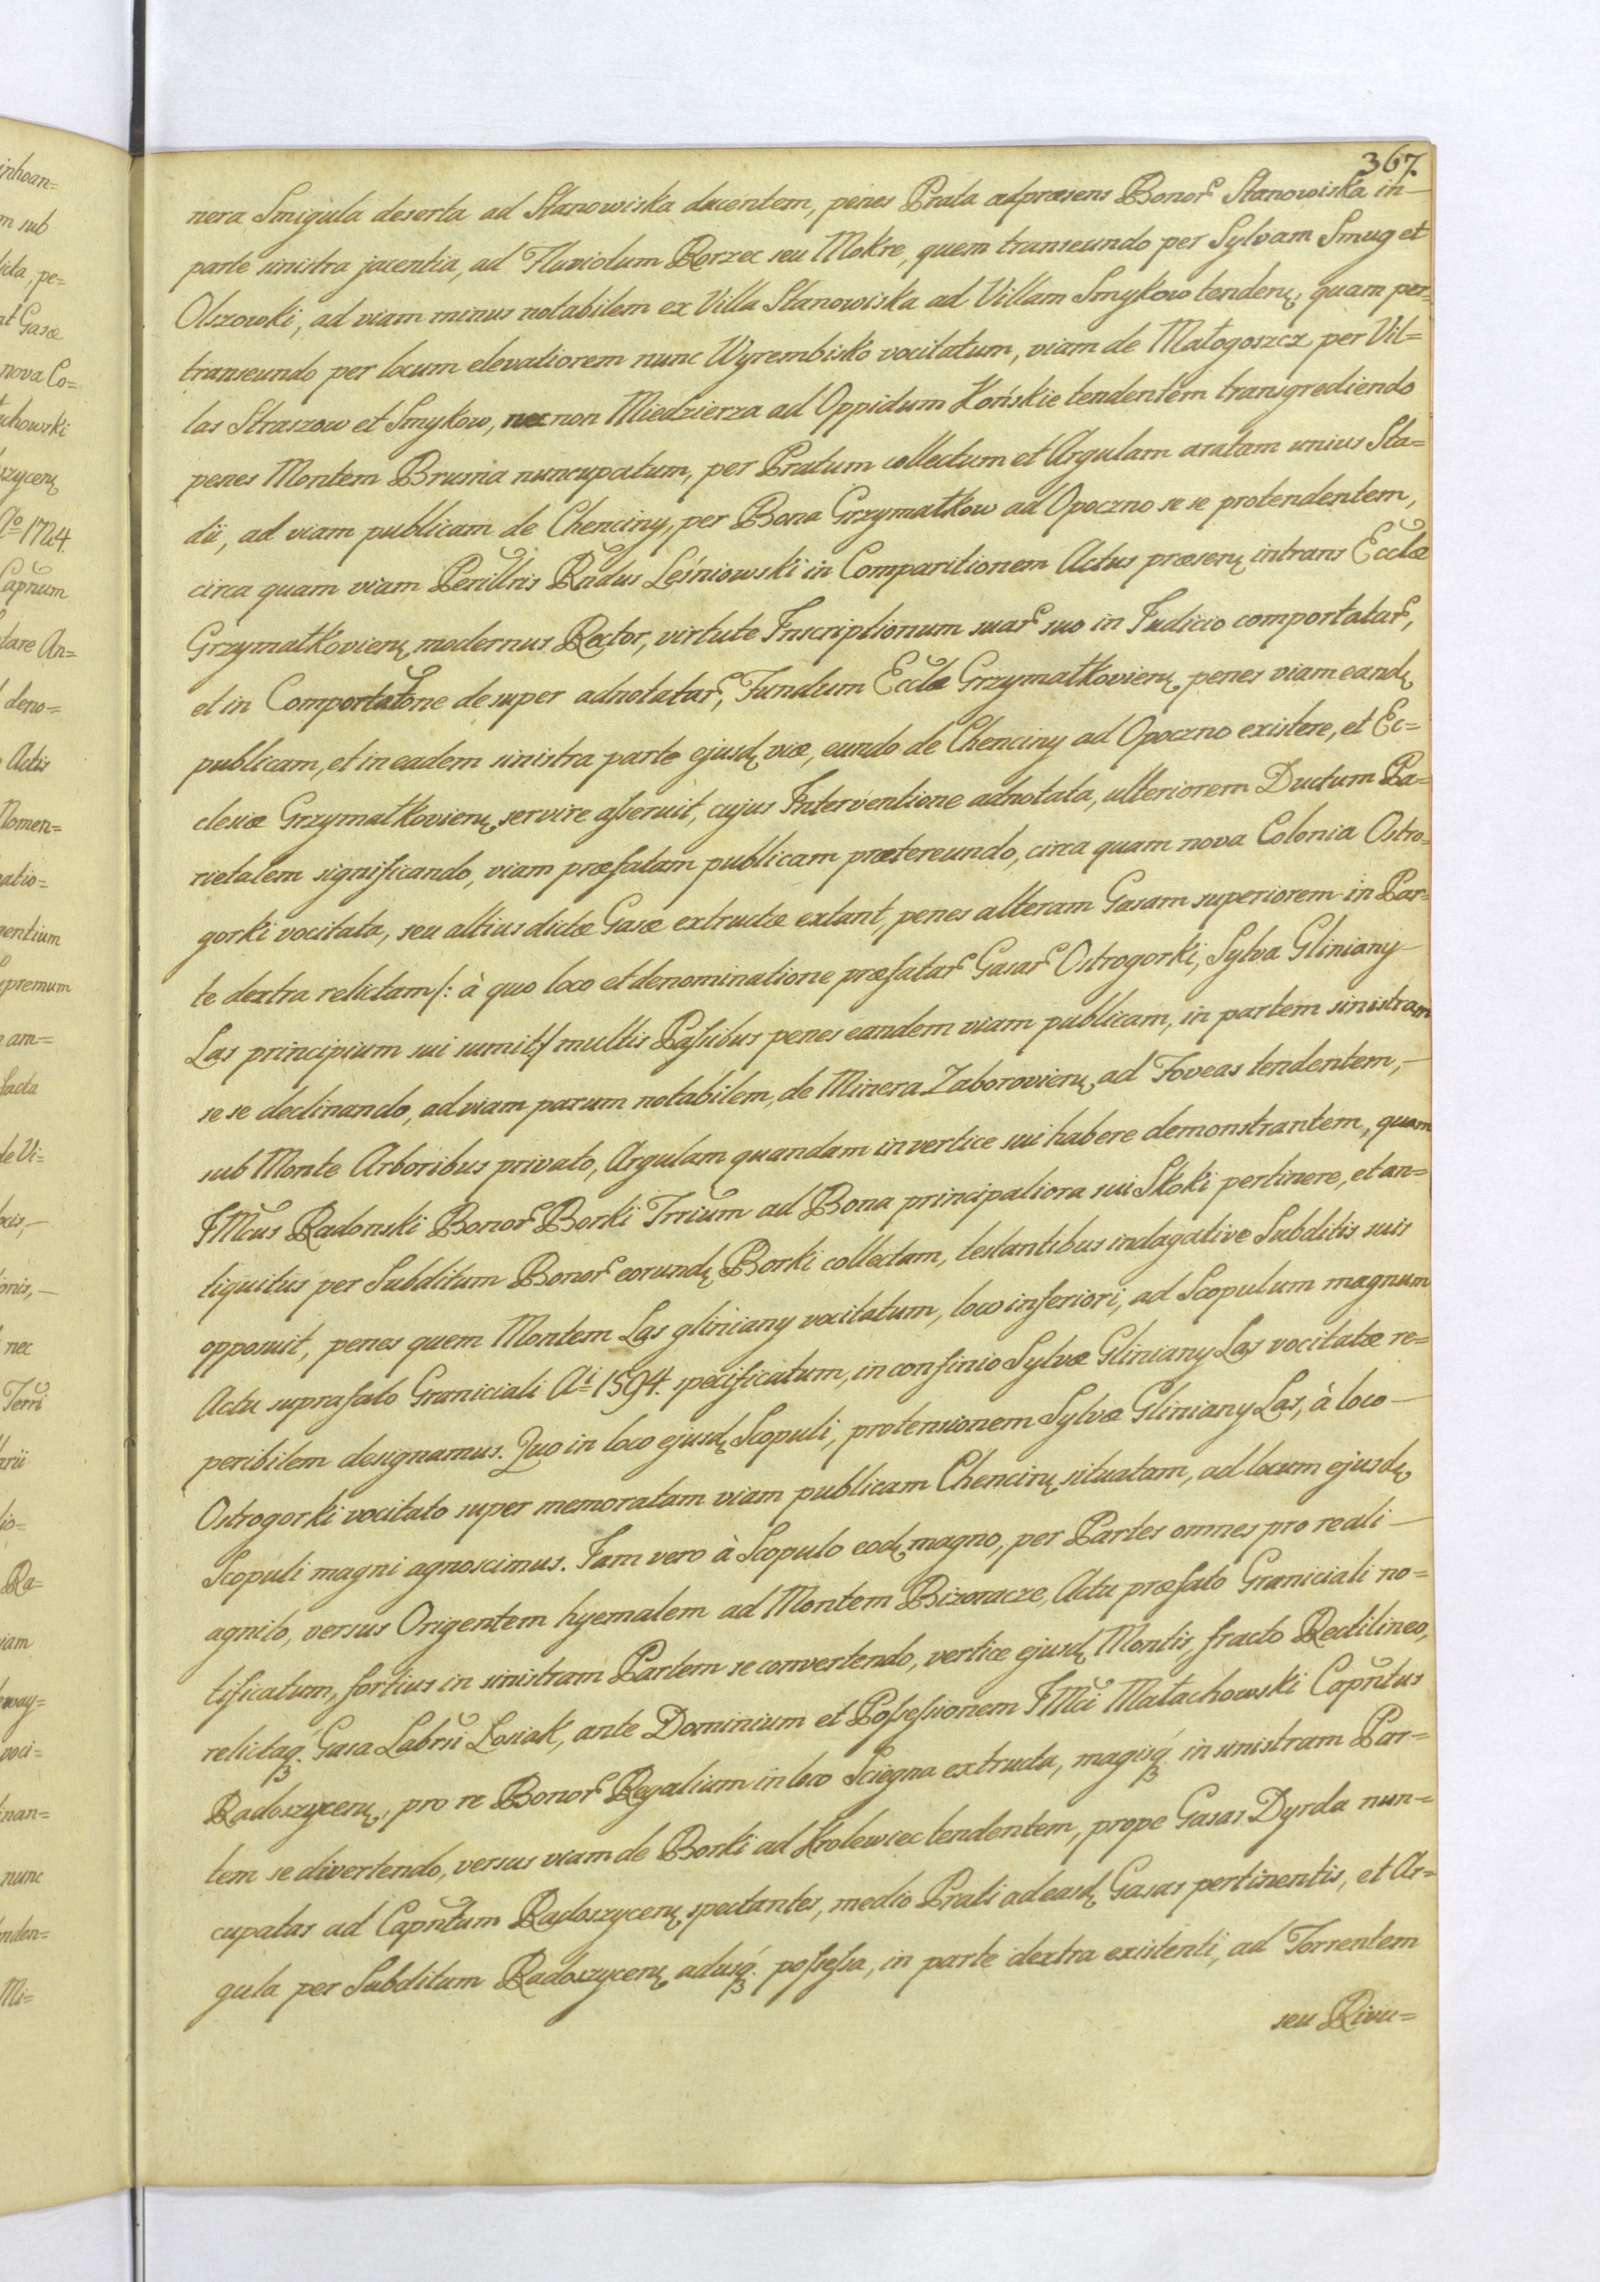 367.
nera Smigula deserta ad Stanowiska ducentem, penes Prata adpræsens Bonor. Stanowiska in
parte sinistra jacentia, ad Fluviolum Borzec seu Mokre, quem transeundo per Sylvam Smug et
Olszowki, ad viam minus notabilem ex Villa Stanowiska ad Villam Smykow tendenę, quam per=
transeundo per locum elevatiorem nunc Wyrembisko vocitatum, viam de Małogoszcz per Vil=
las Straszow et Smykow, necnon Miedzierza ad Oppidum Końskie tendentem transgrediendo
penes Montem Brusnia nuncupatum, per Pratum collectum et Argulam aratam unius Sta=
dii, ad viam publicam de Chenciny, per Bona Grzymałkow ad Opoczno se se protendentem,
circa quam viam Perillris Rndus Leśniowski in Comparitionem Actus præsenę intrans Ecclæ
Grzymałkovienę modernus Rector, virtute Inscriptionum suar. suo in Judicio comportatar.,
et in Comportatõne desuper adnotatar., Fundum Ecclæ Grzymałkovienę penes viam eandę
publicam, et in eadem sinistra parte ejusdę viæ, eundo de Chenciny ad Opoczno existere, et Ec=
clesiæ Grzymałkovienę servire asseruit, cujus Interventione adnotata, ulteriorem Ductum Pa=
rietalem significando, viam præfatam publicam prætereundo, circa quam nova Colonia Ostro=
gorki vocitata, seu altius dictæ Gasæ extructæ extant, penes alteram Gasam superiorem in Par=
te dextra relictam /: à quo loco et denominatione præfatar. Gasar. Ostrogorki, Sylva Gliniany
Las principium sui sumit :/ multis Passibus penes eandem viam publicam, in partem sinistram
se se declinando, ad viam parum notabilem, de Minera Zaborovienę ad Foveas tendentem,
sub Monte Arboribus privato, Argulam quandam in vertice sui habere demonstrantem, quam
IMcus Radonski Bonor. Borki Trrium ad Bona principaliora sui Skoki pertinere, et an=
tiquitus per Subditum Bonor. eorundę Borki collectam, testantibus indagative Subditis suis
opposuit, penes quem Montem Las gliniany vocitatum, loco inferiori, ad Scopulum magnum
Actu suprafato Graniciali Ai 1594. specificatum, in confinio Sylvæ Gliniany Las vocitatæ re=
peribilem designamus. Quo in loco ejusdę Scopuli, protensionem Sylvæ Gliniany Las, à loco
Ostrogorki vocitato super memoratam viam publicam Chencinę situatam, ad locum ejusdę
Scopuli magni agnoscimus. Jam vero à Scopulo eodę magno, per Partes omnes pro reali
agnito, versus Origentem hyemalem ad Montem Bizoracze, Actu præfato Graniciali no=
tificatum, fortius in sinistram Partem se convertendo, vertice ejusdę Montis, fracto Rectilineo,
relictaq3 Gasa Labrsi Łosiak, ante Dominium et Possessionem IMci Małachowski Capntus
Radoszycenę, pro re Bonor. Regalium in loco Sciegna extructa, magisq3 in sinistram Par=
tem se divertendo, versus viam de Borki ad Krolewiec tendentem, prope Gasas Dyrda nun=
cupatas ad Capntum Radoszycenę spectantes, medio Prati ad easdę Gasas pertinentis, et Ar=
gula per Subditum Radoszycenę adusq3 possessa, in parte dextra existenti, ad Torrentem
seu Rivu=